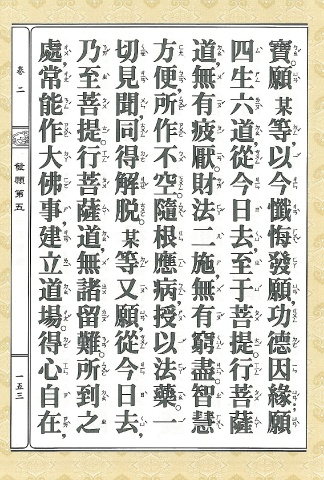 寶願某等,以今懺悔發願功德因緣願
四生六道,從今日去至于菩提行菩薩
道,無有疲厭。財法二施,無有窮盡。智慧
方便,所作不空。隨根應病,授以法藥。一
切見聞,同得解脫。某等又願從今日去,
乃至菩提。行菩薩道,無諸留難。所到之
處,常能作大佛事,建立道場。得心自在,
卷二
發願第五
一五三